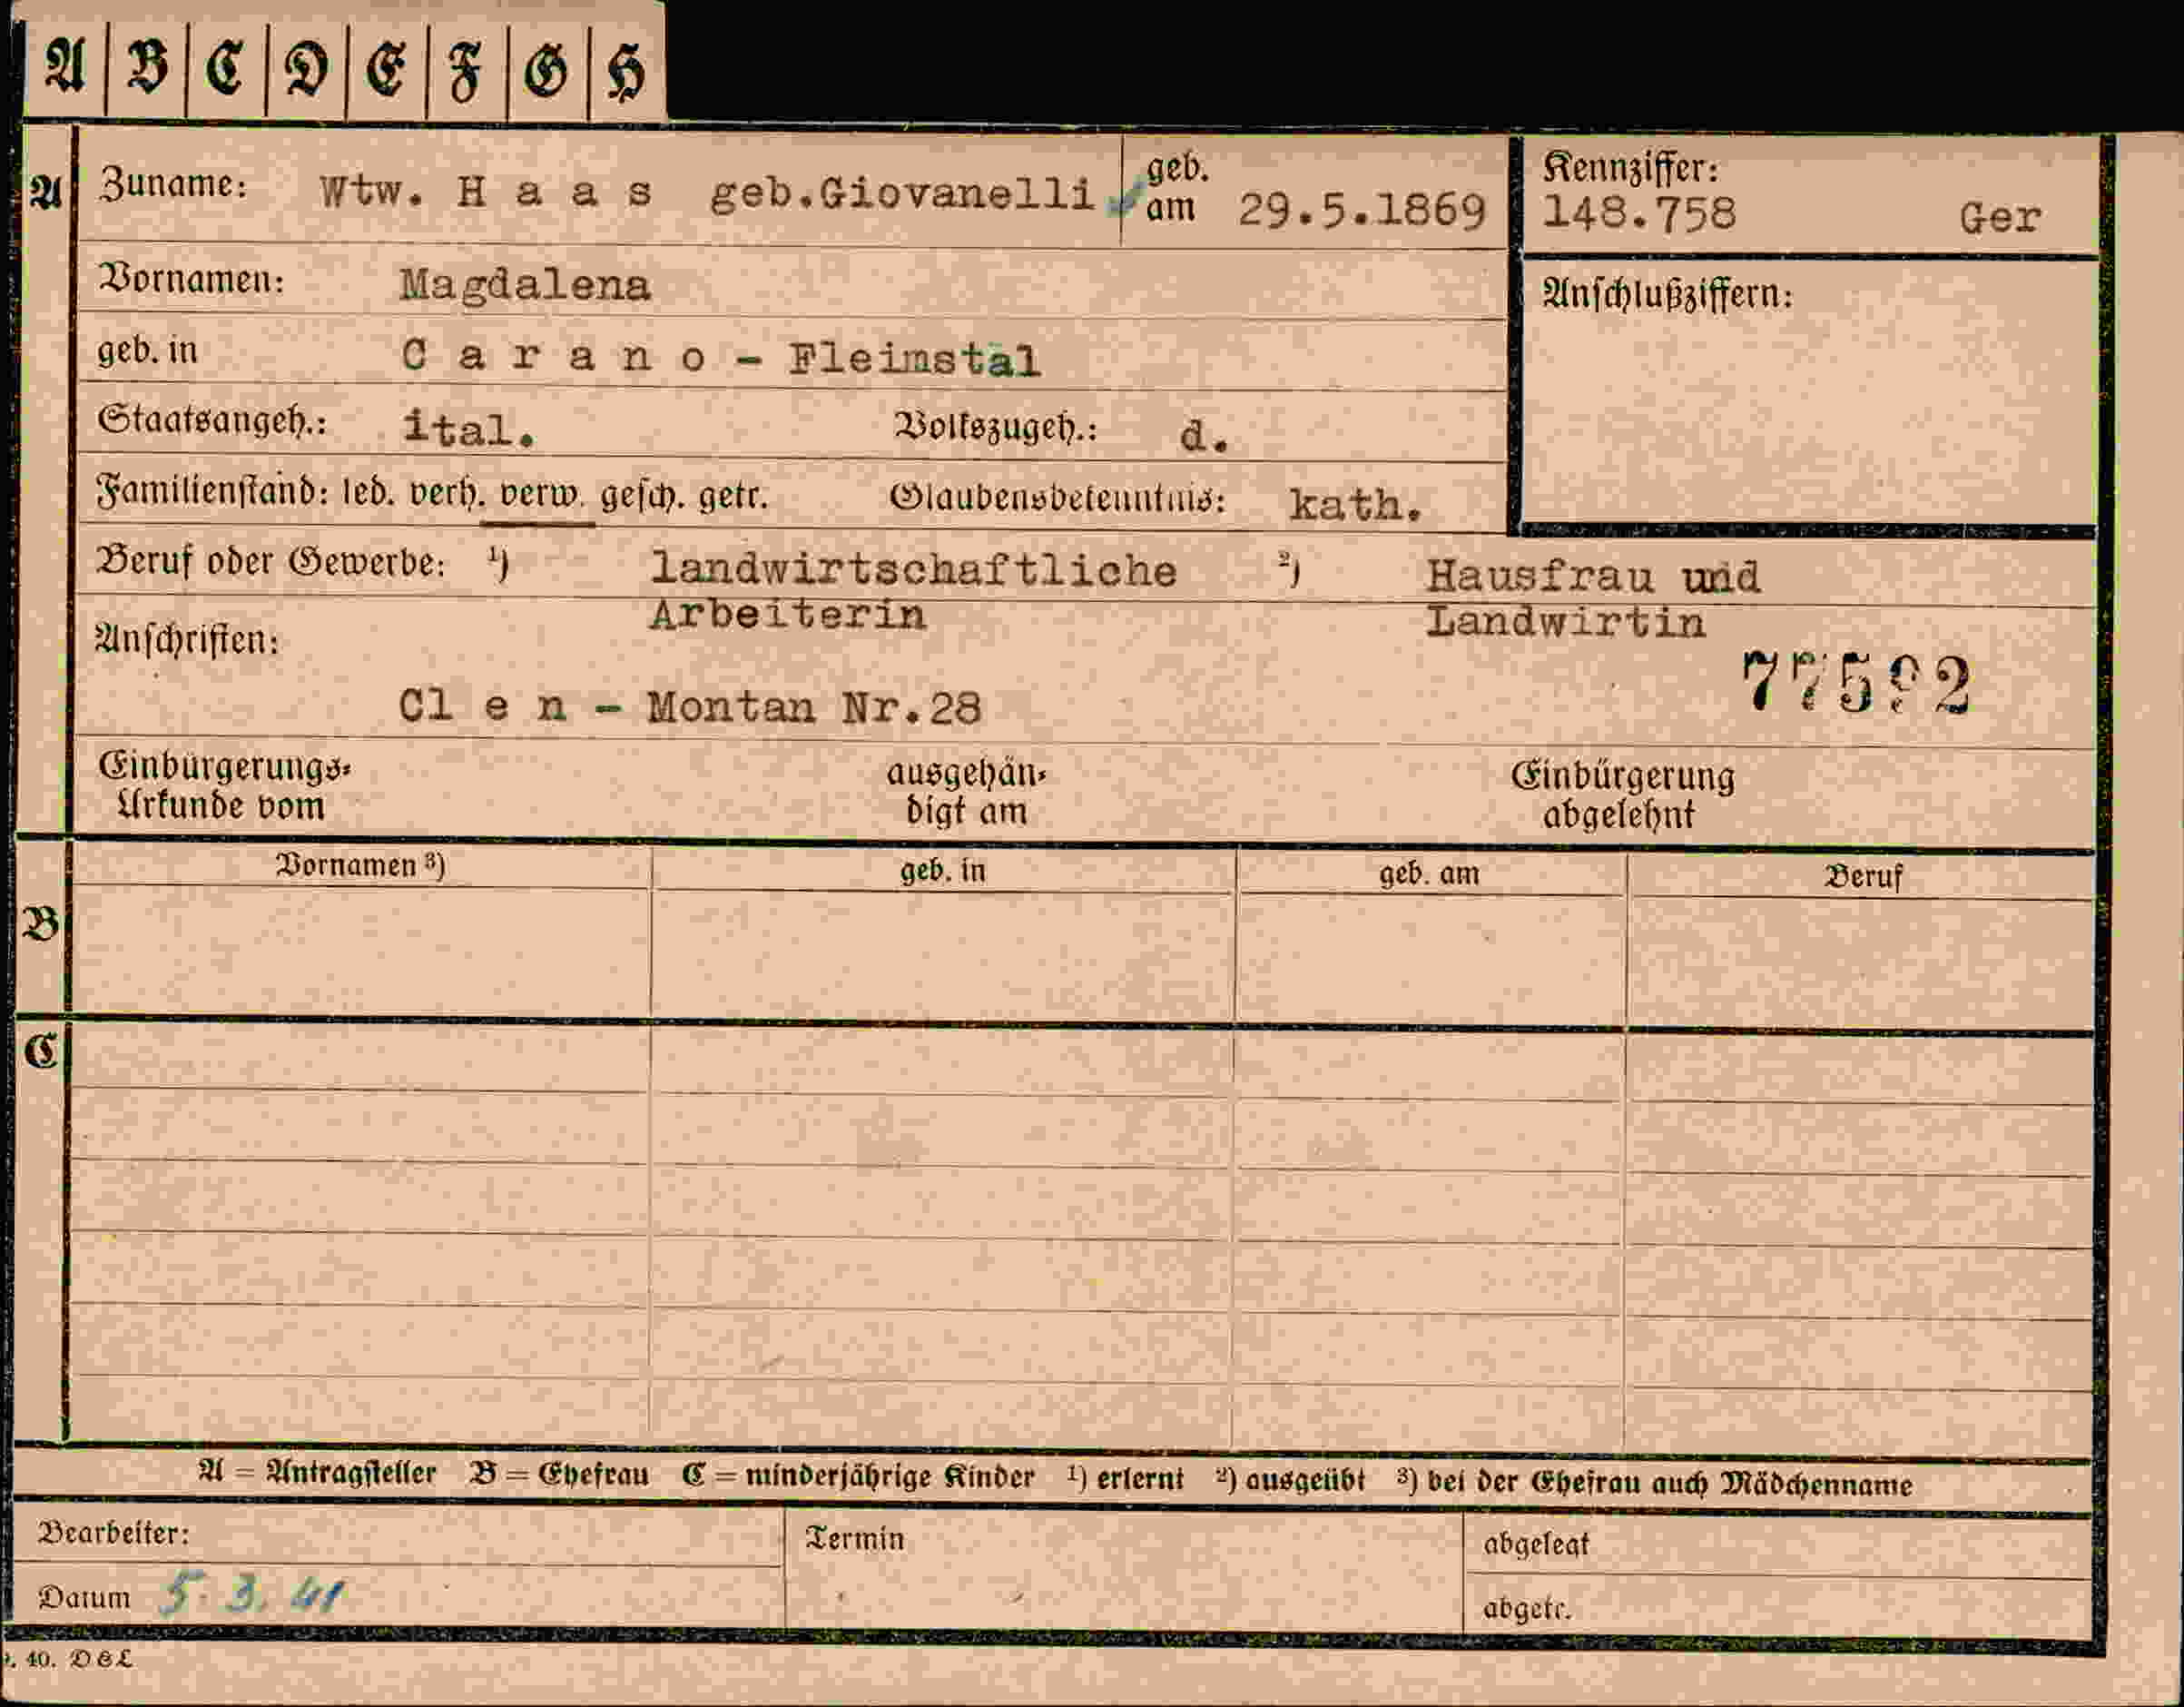 A B C D E F G H
A Zuname: Wtw. H a a s geb.Giovanelli geb. am 29.5.1869 Kennziffer: 148.758 Ger
Vornamen: Magdalena Anschlußziffern:
geb. in C a r a n o - Fleimstal
Staatsangeh.: ital. Volkszugeh.: d.
Familienstand: led. verh. verw. gesch. getr. Glaubensbekenntnis: kath.
Beruf oder Gewerbe: 1) landwirtschaftliche 2) Hausfrau und
Arbeiterin Landwirtin
Anschriften:
Cl e n - Montan Nr.28
Einbürgerungs= ausgehän= Einbürgerung
Urkunde vom digt am abgelehnt
Vornamen 3) geb. in geb. am Beruf
B
C
A = Antragsteller B = Ehefrau C = minderjährige Kinder 1) erlernt 2) ausgeübt 3) bei der Ehefrau auch Mädchenname
Bearbeiter: Termin abgelegt
Datum 5. 3. 41 abgetr.
40. D&L